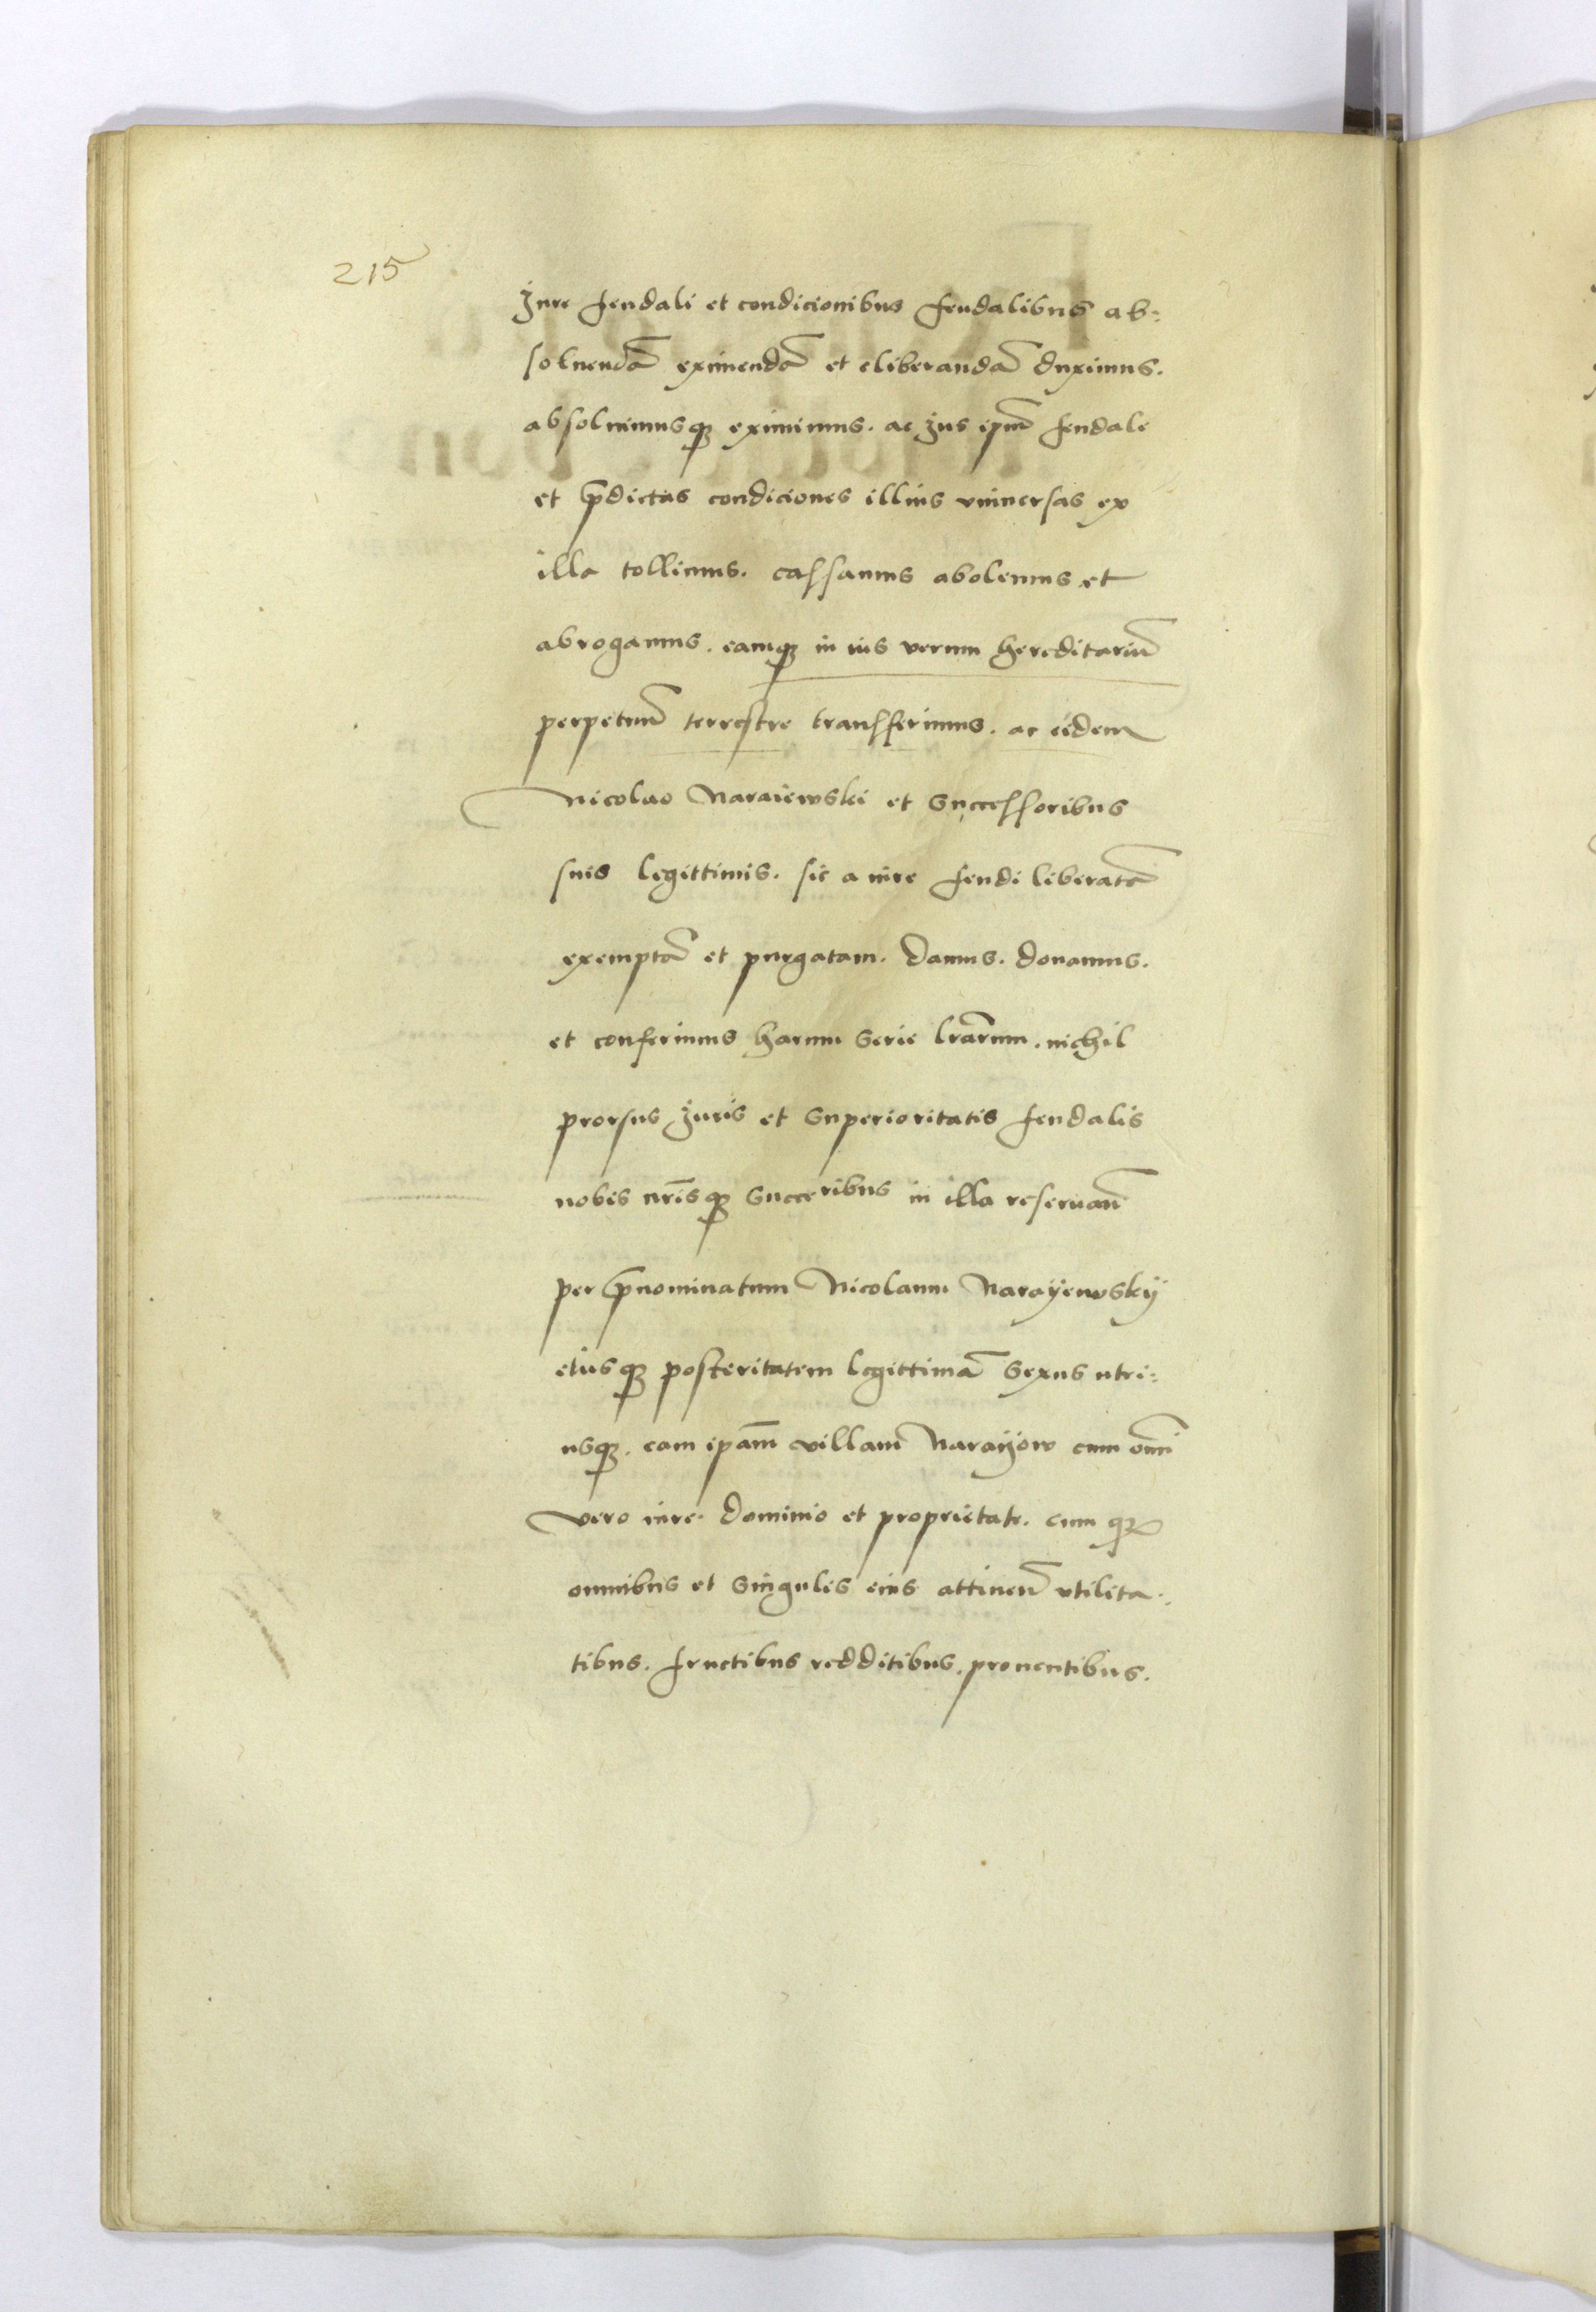 215
Jure feudali et condicionibus feudalibus ab=
soluendā eximendā et eliberandā duximus.
absoluimusqꝫ eximimus. ac Jus ipm̄ feudale
et p̄dictas condiciones illius vniuersas ex
illa tollimus. cassamus abolemus et
abrogamus. eamqꝫ in ius verum hereditariū
perpetuū terrestre transferimus. ac eidem
Nicolao Naraiewski et Successoribus
suis legittimis. sic a iure feudi liberatā
exemptā et purgatam. Damus. Donamus.
et conferimus harum Serie lrārum. nichil
prorsus Juris et Superioritatis feudalis
nobis nrīsqꝫ Succeribus in illa reseruan̄
per p̄nominatum Nicolaum Narayewskÿ
eiusqꝫ posteritatem legittimā Sexus utri=
usqꝫ. eam ipām villam Narayow cum om̄i
vero iure. Dominio et proprietate. cum qꝫ
omnibus et Singulis eius attinen̄ vtilita=
tibus. fructibus redditibus. prouentibus.